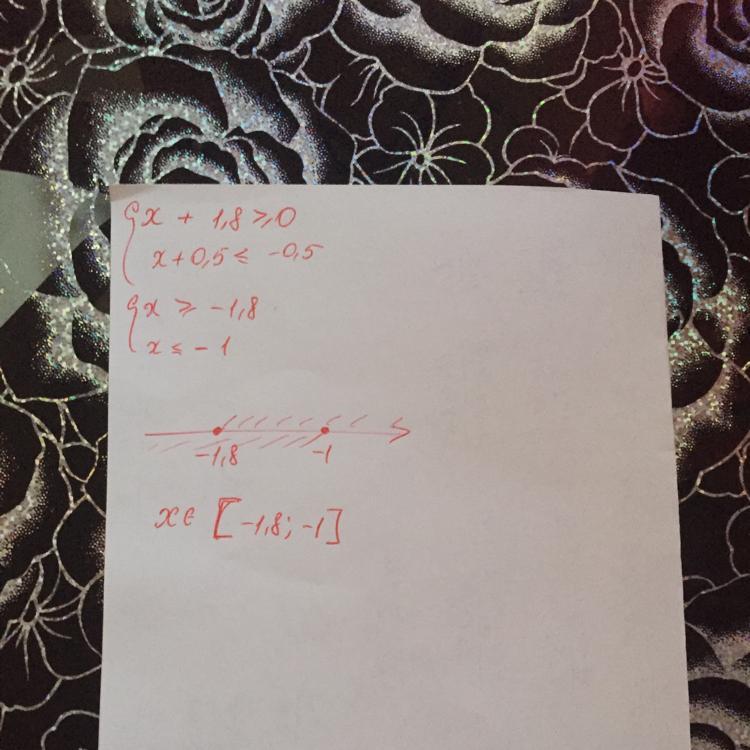 {x + 1,8 ⩾ 0
x + 0,5 ⩽ -0,5
{x ⩾ -1,8
x ⩽ -1
-1,8 -1
x ∈ [-1,8; -1]